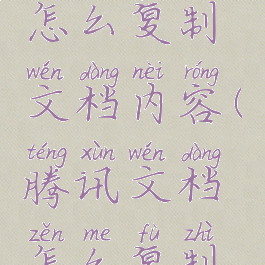 怎么复制
wén dàng nèi róng
文档内容(
téng xùn wén dàng
腾讯文档
zěn me fù zhì
怎么复制